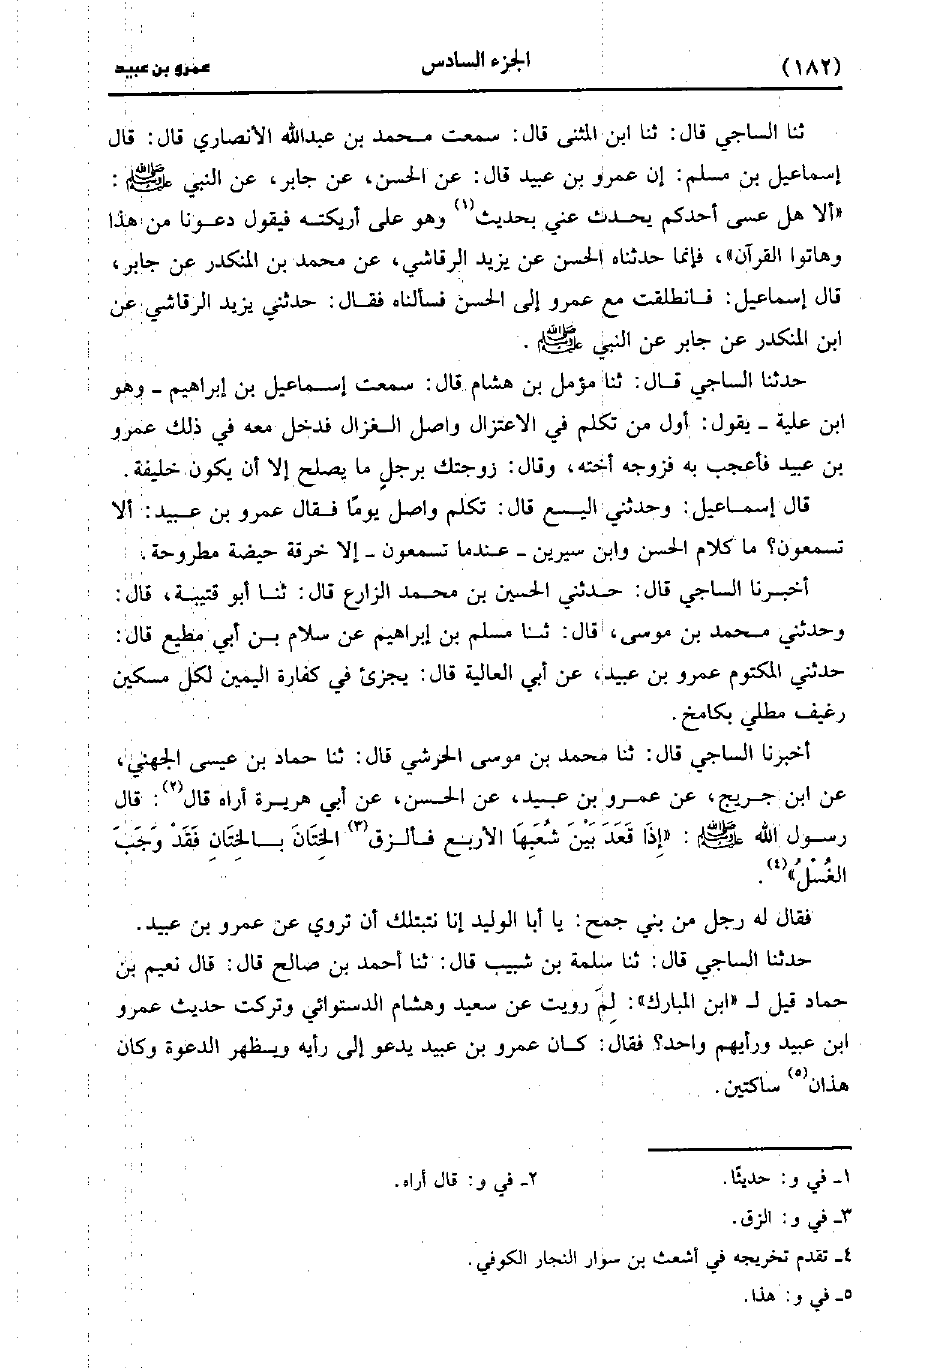 (١٨٢) الجزء السادس عمرو بن عبيد
ثنا الساجي قال: ثنا ابن المثنى قال: سمعت محمد بن عبدالله الأنصاري قال: قال
إسماعيل بن مسلم: إن عمرو بن عبيد قال: عن الحسن، عن جابر، عن النبي ﷺ :
«ألا هل عسى أحدكم يحدث عني بحديث(١) وهو على أريكته فيقول دعونا من هذا
وهاتوا القرآن»، فإنما حدثناه الحسن عن يزيد الرقاشي، عن محمد بن المنكدر عن جابر،
قال إسماعيل: فانطلقت مع عمرو إلى الحسن فسألناه فقال: حدثني يزيد الرقاشي عن
ابن المنكدر عن جابر عن النبي ﷺ .
حدثنا الساجي قال: ثنا مؤمل بن هشام قال: سمعت إسماعيل بن إبراهيم ـ وهو
ابن علية ـ يقول: أول من تكلم في الاعتزال واصل الغزال فدخل معه في ذلك عمرو
بن عبيد فأعجب به فزوجه أخته، وقال: زوجتك برجلٍ ما يصلح إلا أن يكون خليفة.
قال إسماعيل: وحدثني اليسع قال: تكلم واصل يومًا فقال عمرو بن عبيد: ألا
تسمعون؟ ما كلام الحسن وابن سيرين ـ عندما تسمعون ـ إلا خرقة حيضة مطروحة.
أخبرنا الساجي قال: حدثني الحسين بن محمد الزارع قال: ثنا أبو قتيبة، قال:
وحدثني محمد بن موسى، قال: ثنا مسلم بن إبراهيم عن سلام بن أبي مطيع قال:
حدثني المكتوم عمرو بن عبيد، عن أبي العالية قال: يجزئ في كفارة اليمين لكل مسكين
رغيف مطلي بكامخ.
أخبرنا الساجي قال: ثنا محمد بن موسى الحرشي قال: ثنا حماد بن عيسى الجهني،
عن ابن جريج، عن عمرو بن عبيد، عن الحسن، عن أبي هريرة أراه قال(٢): قال
رسول الله ﷺ : «إِذَا قَعَدَ بَيْنَ شُعَبِهَا الأربع فألزق(٣) الخِتَانَ بالخِتَانِ فَقَدْ وَجَبَ
الغُسْلُ»(٤).
فقال له رجل من بني جمح: يا أبا الوليد إنا نتبتلك أن تروي عن عمرو بن عبيد.
حدثنا الساجي قال: ثنا سلمة بن شبيب قال: ثنا أحمد بن صالح قال: قال نعيم بن
حماد قيل لـ «ابن المبارك»: لِمَ رويت عن سعيد وهشام الدستوائي وتركت حديث عمرو
ابن عبيد ورأيهم واحد؟ فقال: كان عمرو بن عبيد يدعو إلى رأيه ويظهر الدعوة وكان
هذان(٥) ساكتين.
١ـ في و: حديثًا. ٢ـ في و: قال أراه.
٣ـ في و: الزق.
٤ـ تقدم تخريجه في أشعث بن سوار النجار الكوفي.
٥ـ في و: هذا.